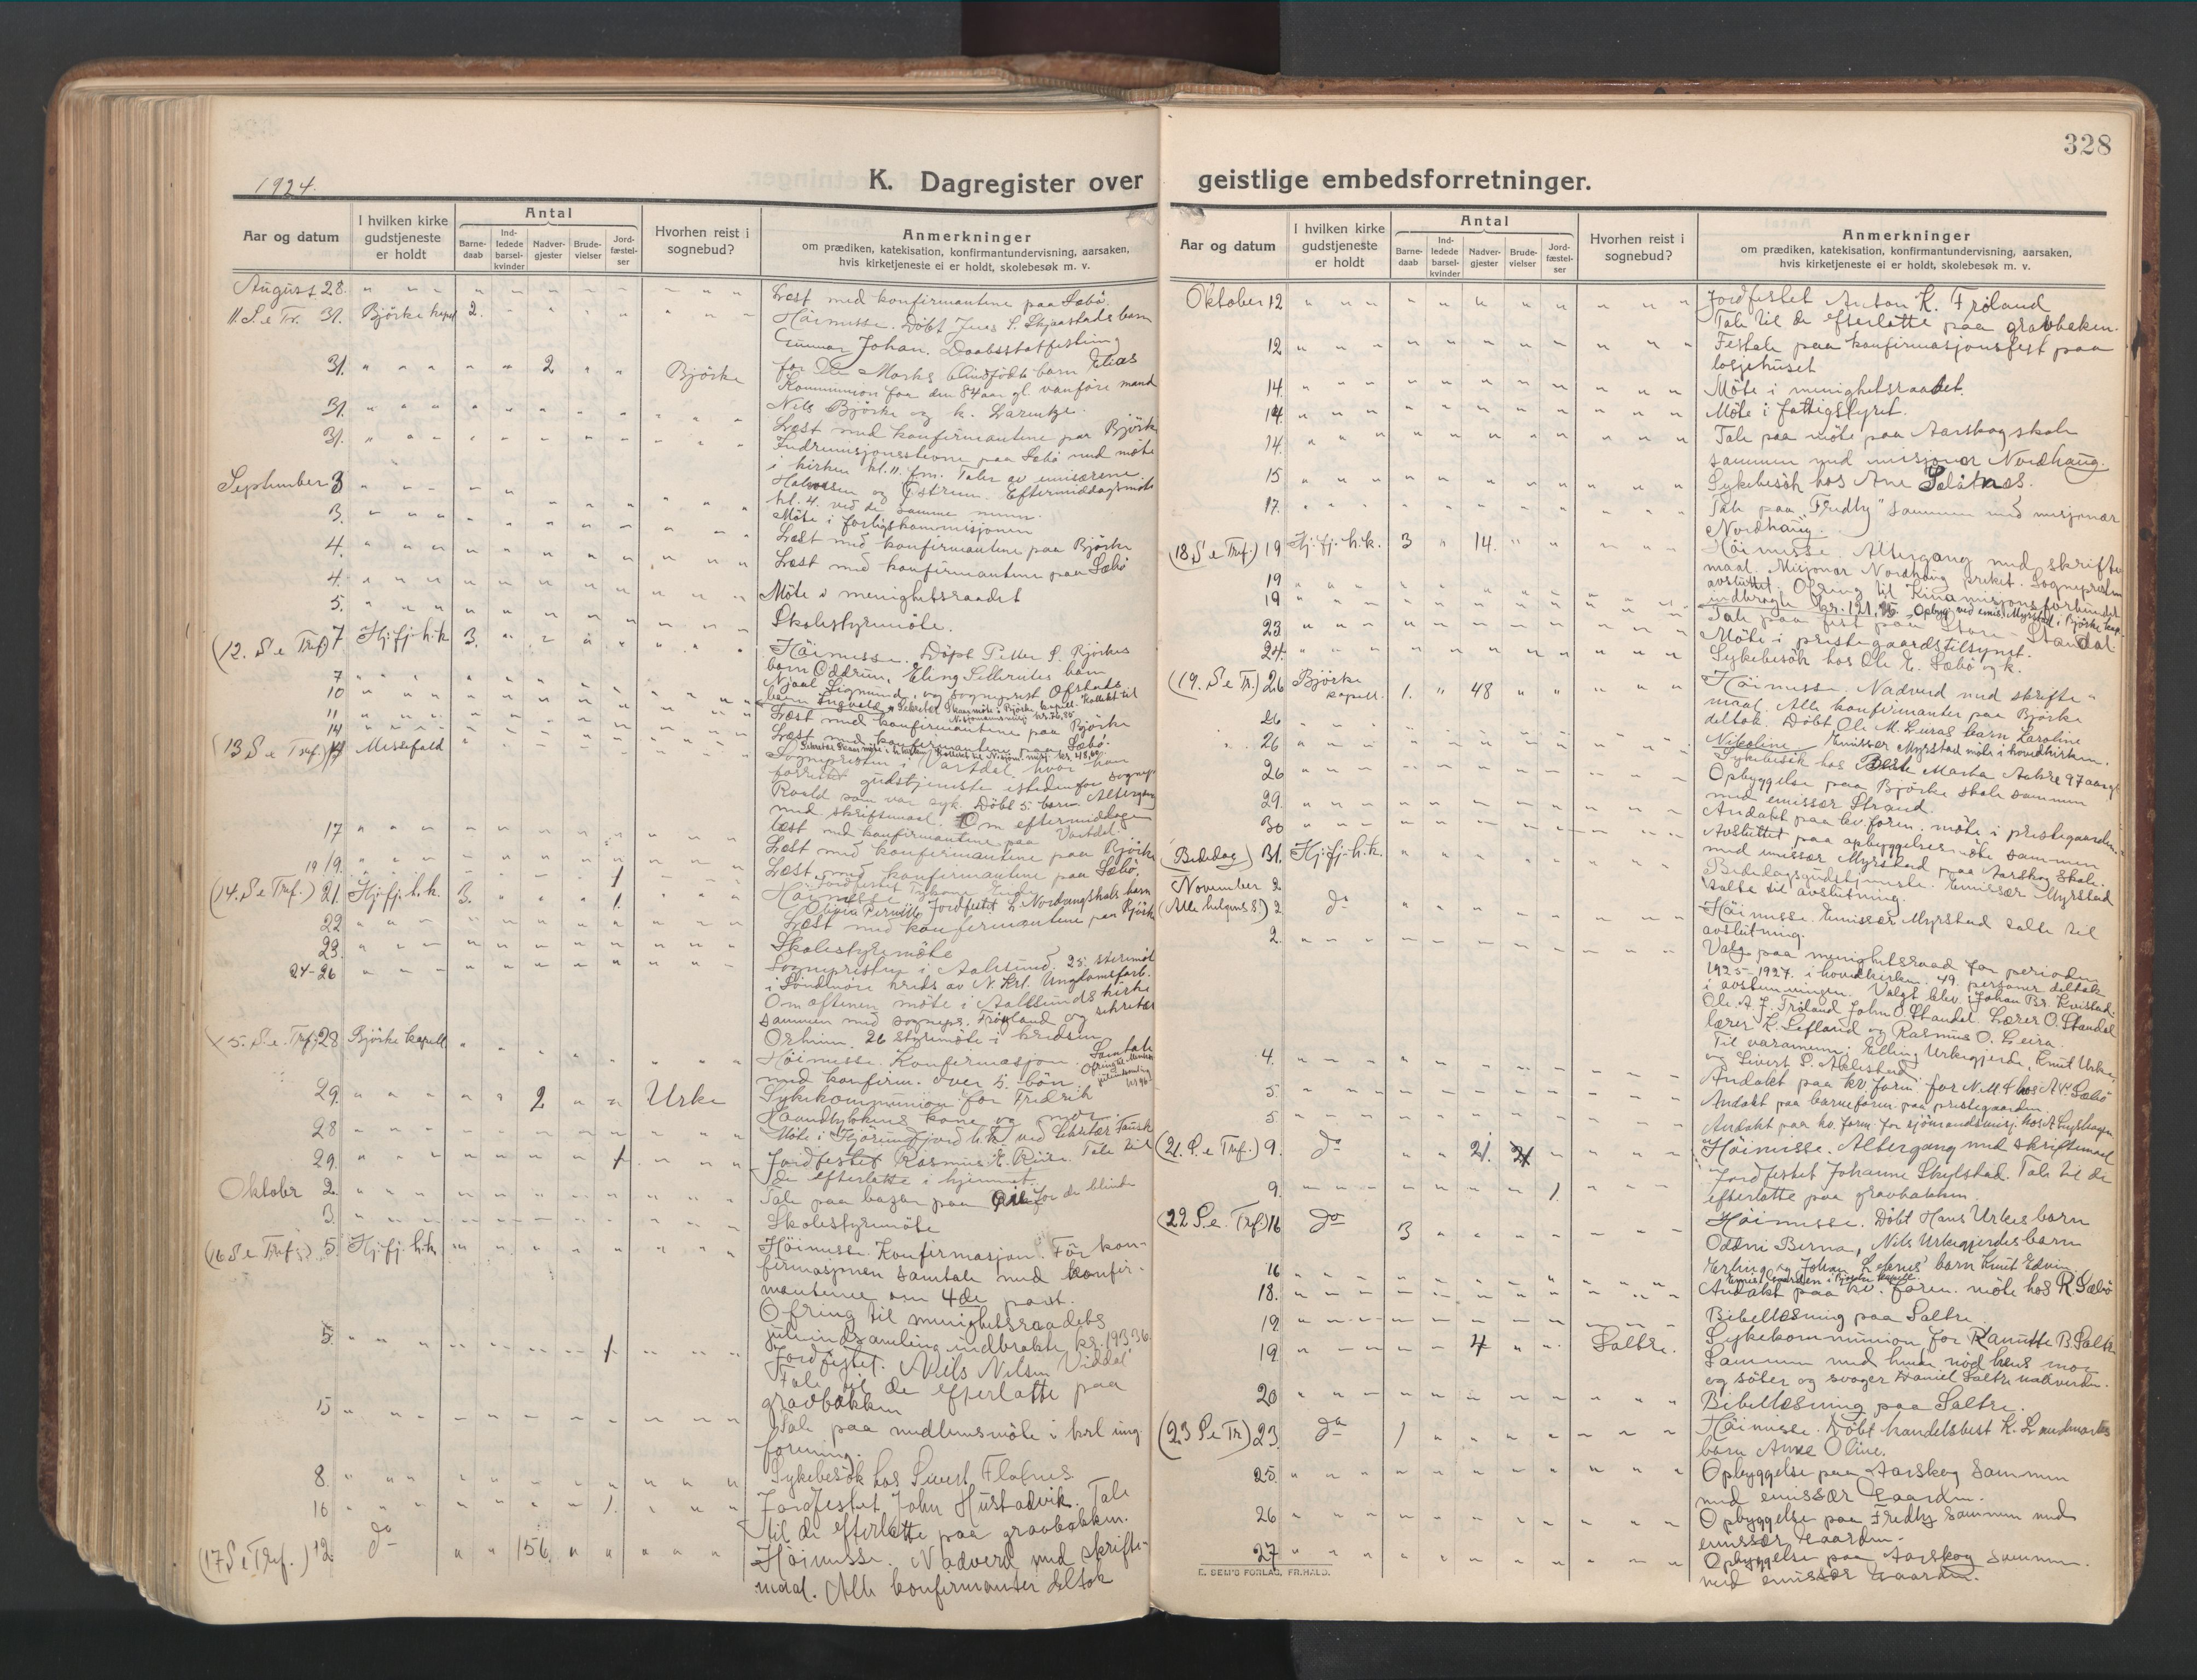 328
1924.
K. Dagregister over geistlige embedsforretninger.
Aar og datum
I hvilken kirke gudstjeneste er holdt
Antal
Barne-daab
Ind-ledede barsel-kvinder
Nadver-gjester
Brude-vielser
Jord-fæstel-ser
Hvorhen reist i sognebud?
Anmerkninger
om prædiken, katekisation, konfirmantundervisning, aarsaken,
hvis kirketjeneste ei er holdt, skolebesøk m. v.
August 28. Læst med konfirmantene paa Sæbö.
11. S. e Tr. 31. Björke kapel 2. Höimesse. Döbt Jens S. Skjaastads barn
Gunnar Johan. Daabsstatfesting
for Ole Marks blindfödte barn Elias
31. 2 Björke Kommunion for den 84 aar gl. vanföre mand
Nils Björke og k. Larentze.
31. Læst med konfirmantene paa Björke
31. Indremisjonsstevne paa Sæbö med möte
i kirken kl. 11. fm. Taler av emisærene
Halvorsen og Östrem. Eftermiddagsmöte
kl. 4. ved de samme menn.
September 3 Möte i forligskommisjonen
3. Læst med konfirmantene paa Björke
4. Læst med konfirmantene paa Sæbö
4. Möte i menighetsraadet
5. Skolestyremöte.
(12. S. e Tref) 7 Hj.fj.h.k 3. Höimesse. Döpt Petter S. Björkes
barn Oddrun, Eling Sellereites barn
Njaal Sigmund, og sogneprest Ofstads
barn Ingvald
7 10 Læst med konfirmantene paa Björke
11 Læst med konfirmantene paa Sæbö.
14
(13 S e Tref.) 14 Messefald Sognepresten i Vartdal hvor han
forrettet gudstjeneste istedenfor sognepr.
Roald som var syk. Döbt 5 barn. Altergang
med skriftemaal. Om eftermiddagen
læst med konfirmantene paa Vartdal.
17 Læst med konfirmantene paa Björke
19 19. Læst med konfirmantene paa Sæbö.
(14. S e Tref.) 21. Hj.fj.h.k. 3. 1 Höimesse
Jordfestet L. Nordvangskals barn
22 Læst med konfirmantene paa Björke
23. Skolestyremöte
24-26 Sognepresten i Aalesund. 25. styremöte
i Söndmöre kreds av N. Krl. Ungdomsforb.
Om aftenen möte i Aalesunds kirke
sammen med sognepr. Fröyland og sekretær
Orheim. 26 styremöte i kredsen
(15. S. e. Tref) 28 Björke kapell Höimesse. Konfirmasjon. Samtale
med konfirm. over 5. bön.
29. 2 Urke Sykekommunion for Fredrik
Haandlykkens kone og mor.
28 Möte i Hjörungfjord h.k. ved sekretær Fausk
29. 1 Jordfestet Rasmus E. Riise. Tale til
de efterlatte i hjemmet.
Oktober 2. Tale paa basar paa for de blinde
3. Skolestyremöte
(16 S e Tref.) 5. Hj.fj.h.k Höimesse. Konfirmasjon. För kon-
firmasjonen samtale med konfir-
mantene om 4de part.
Ofring til menighetsraadets
juleindsamling indbrakte kr. 193.36
5. 1 Jordfestet Nils Nilsen Viddal
Tale til de efterlatte paa
gravbakken
15 Tale paa medlemsmöte i krl. ung.
forening.
8. Sykebesök hos Sivert Flatnes
10 1. Jordfestet John Hustadvik. Tale
til de efterlatte paa gravbakken.
(17 S e Tref.) 12 do 156 Höimesse. Nadverd med skrifte-
maal. Alle konfirmanter deltok
Oktober 12 Jordfestet Anton K. Fröland
Tale til de efterlatte paa gravbakken.
12 Festtale paa konfirmasjonsfest paa
losjehuset
14. Möte i menighetsraadet.
14. Möte i fattigstyret.
14. Tale paa möte paa Aarskog skole
sammen med misjonær Nordhaug.
15 Sykebesök hos Ane Sætnæs.
17. Tale paa "Fredly" sammen med misjonær
Nordhaug.
(18 S e Tref.) 19 Hj.fj.h.k. 3 14. Höimesse. Altergang med skrifte-
maal. Misjonær Nordhaug preket. Sognepresten
avsluttet. Ofring til Kinamisjonsforbundet
indbragte kr. 121,
19 Opbyg. ved emis. Myrstad i Björke kap.
19 Tale paa fest paa Store-Standal
23 Möte i prestegaardstilsynet.
24. Sykebesök hos Ole E. Sæbö og k.
(19. S. e Tr.) 26 Björke kapell. 1. 48 Höimesse. Nadverd med skrifte-
maal. Alle konfirmanter paa Björke
deltok. Döbt Ole M. Luras barn Karoline
Nikoline
26 Emissær Myrstad möte i hovedkirken.
26 Sykebesök hos Marta Aakre 97 aar gl
26 Opbyggelse paa Björke skole sammen
med emissær Strand.
29. Andakt paa kv. foren. möte i prestegaarden.
30 Avsluttet paa opbyggelsesmöte sammen
med emissær Myrstad paa Aarskog skole.
(Bededag) 31. Hj.fj.h.k. Bededagsgudstjeneste. Emissær Myrstad
talte til avslutning.
November 2
(Alle helgens s.) 2 do Höimesse. Emissær Myrstad talte til
avslutning.
2. Valg paa menighetsraad for perioden
1925-1927. i hovedkirken. 49 personer deltok
i avstemningen. Valgt blev: Johan Br. Kvistad.
Ole A. J. Fröland John O. Standal. Lærer O. Standal
lærer K. Lefland og Rasmus O. Leira.
Til varamenn: Elling Urkegjerde, Knut Urke
og Sivert S. Aklestad
4. Andakt paa kv. foren for N.M.S hos A. P. Sæbö
5. Andakt paa barneforen. paa prestegaarden.
5 Andakt paa kv. foren. for sjömandsmisj. hos
(21. S. e Tref.) 9. do 21. Höimesse. Altergang med skriftemaal
9. 1. Jordfestet Johanne Skylstad. Tale til de
efterlatte paa gravbakken.
(22 S. e. Tref) 16 do 3 Höimesse. Döbt Hans Urkes barn
Oddni Berna, Nils Urkegjerdes barn
Erling og Johan barn Knut Edvin
16 Emis. Gaarden i Björke kapell
18. Andakt paa kv. foren. möte hos R. Sæbö
19 Bibellesning paa Saltre
19 4 Saltre. Sykekommunion for Kanutte B. Saltre
Sammen med hende nöd hens mor
og söster og svoger Daniel Saltre nadverden.
20 Bibellesning paa Saltre.
(23 S e Tr) 23. do 1 Höimesse. Döbt handelsbest. K. Lundmarks
barn Anne Oline.
25. Opbyggelse paa Aarskog sammen
med emissær Gaarden.
26 Opbyggelse paa Fredly sammen med
emissær Gaarden.
27 Opbyggelse paa Aarskog sammen
med emissær Gaarden.
E. SEM'S FORLAG, FR.HALD.